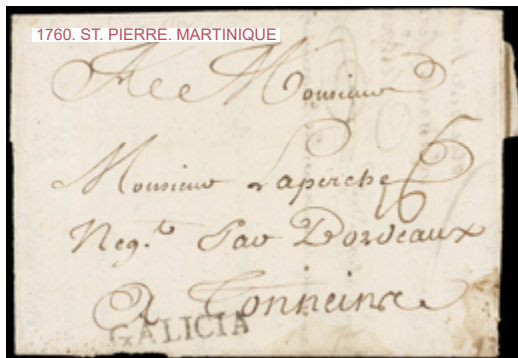 1760. ST. PIERRE. MARTINIQUE
A Monsieur
Monsieur Laperche
Neg.t Par Bordeaux
A Tonneins
GALICIA